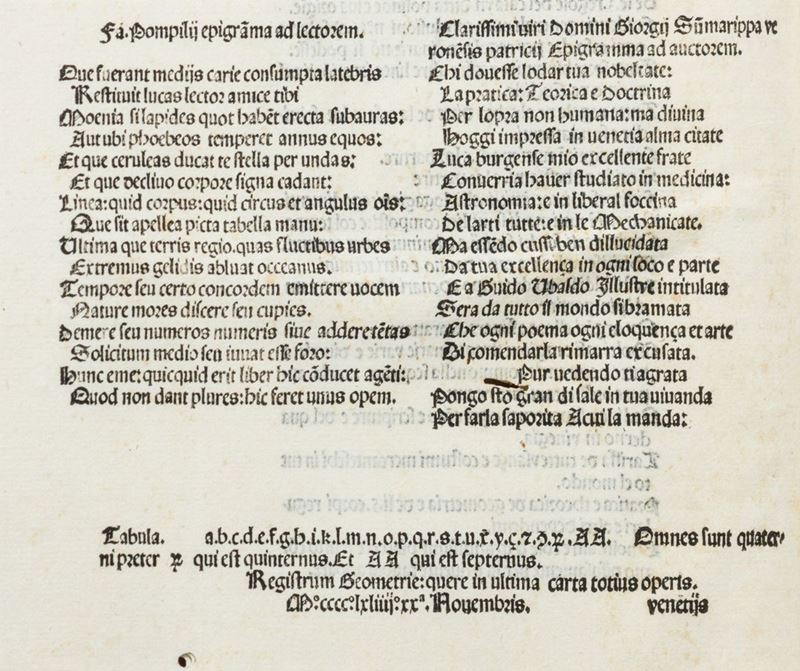 Fa. Pompilij epigrāma ad lectorem.
Que fuerant medijs carie consumpta latebris
Restituit lucas lector amice tibi
Moenia si lapides quot habēt erecta sub auras:
Aut ubi phoebeos temperet annus equos:
Et que ceruleas ducat te stella per undas:
Et que declivo corpore signa cadant:
Linea: quid corpus: quid circus et angulus oīs:
Que sit apellea picta tabella manu:
Ultima que terris regio. quas fluctibus urbes
Extremus gelidis abluat occeanus.
Tempore seu certo concordem emittere uocem
Nature mores discere seu cupies.
Demere seu numeros numeris siue addere tētas
Solicitum medio seu iuuat esse foro:
Hunc eme: quicquid erit liber hic cōducet agēti:
Quod non dant plures: hic feret unus opem.
Clarissimi uiri Domini Giorgij Sūmarippa ve
ronēsis patricij Epigramma ad auctorem.
Chi douesse lodar tua nobeltate:
La pratica: Teorica e Doctrina
Per lopra non humana: ma diuina
Hoggi impressa in uenetia alma citate
Luca burgense mio excellente frate
Conuerria hauer studiato in medicina:
Astronomia: e in liberal foccina
De larti tutte: e in le Mechanicate.
Ma essēdo cussi ben dillucidata
Da tua excellença in ogni loco e parte
E a Guido Ubaldo Illustre intitulata
Sera da tutto il mondo si bramata
Che ogni poema ogni eloquença et arte
Di comendarla rimarra excusata.
Pur uedendo ti agrata
Pongo sto gran di sale in tua uiuanda
Per farla saporita Acui la manda:
Tabula. a.b.c.d.e.f.g.h.i.k.l.m.n.o.p.q.r.s.t.u.x.y.ç.⁊.ꝯ.ꝝ.AA. Omnes sunt quater
ni preter ꝝ qui est quinternus. Et AA qui est septernus.
Registrum Geometrie: quere in ultima carta totius operis.
M°.cccc°lxliiij°.xxª. Nouembris. venetijs